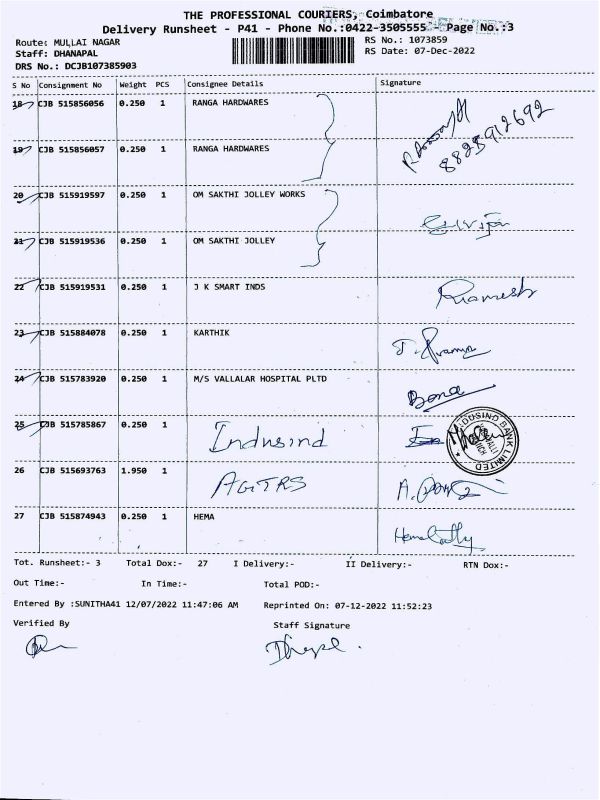 THE PROFESSIONAL COURIERS, Coimbatore
Delivery Runsheet - P41 - Phone No.:0422-3505555 - Page No.:3
Route: MULLAI NAGAR
RS No.: 1073859
Staff: DHANAPAL
RS Date: 07-Dec-2022
DRS No.: DCJB107385903
S No Consignment No Weight PCS Consignee Details Signature
18 CJB 515856056 0.250 1 RANGA HARDWARES
8825912692
19 CJB 515856057 0.250 1 RANGA HARDWARES
20 CJB 515919597 0.250 1 OM SAKTHI JOLLEY WORKS
21 CJB 515919536 0.250 1 OM SAKTHI JOLLEY
22 CJB 515919531 0.250 1 J K SMART INDS Ramesh
23 CJB 515884078 0.250 1 KARTHIK
24 CJB 515783920 0.250 1 M/S VALLALAR HOSPITAL PLTD
25 CJB 515785867 0.250 1 Indusind
INDUSIND BANK LIMITED
26 CJB 515693763 1.950 1
27 CJB 515874943 0.250 1 HEMA
Tot. Runsheet:- 3 Total Dox:- 27 I Delivery:- II Delivery:- RTN Dox:-
Out Time:- In Time:- Total POD:-
Entered By :SUNITHA41 12/07/2022 11:47:06 AM Reprinted On: 07-12-2022 11:52:23
Verified By Staff Signature